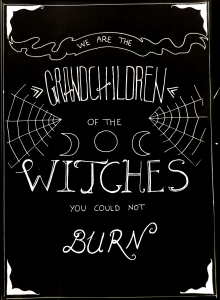 WE ARE THE
GRANDCHILDREN
OF THE
WITCHES
YOU COULD NOT
BURN